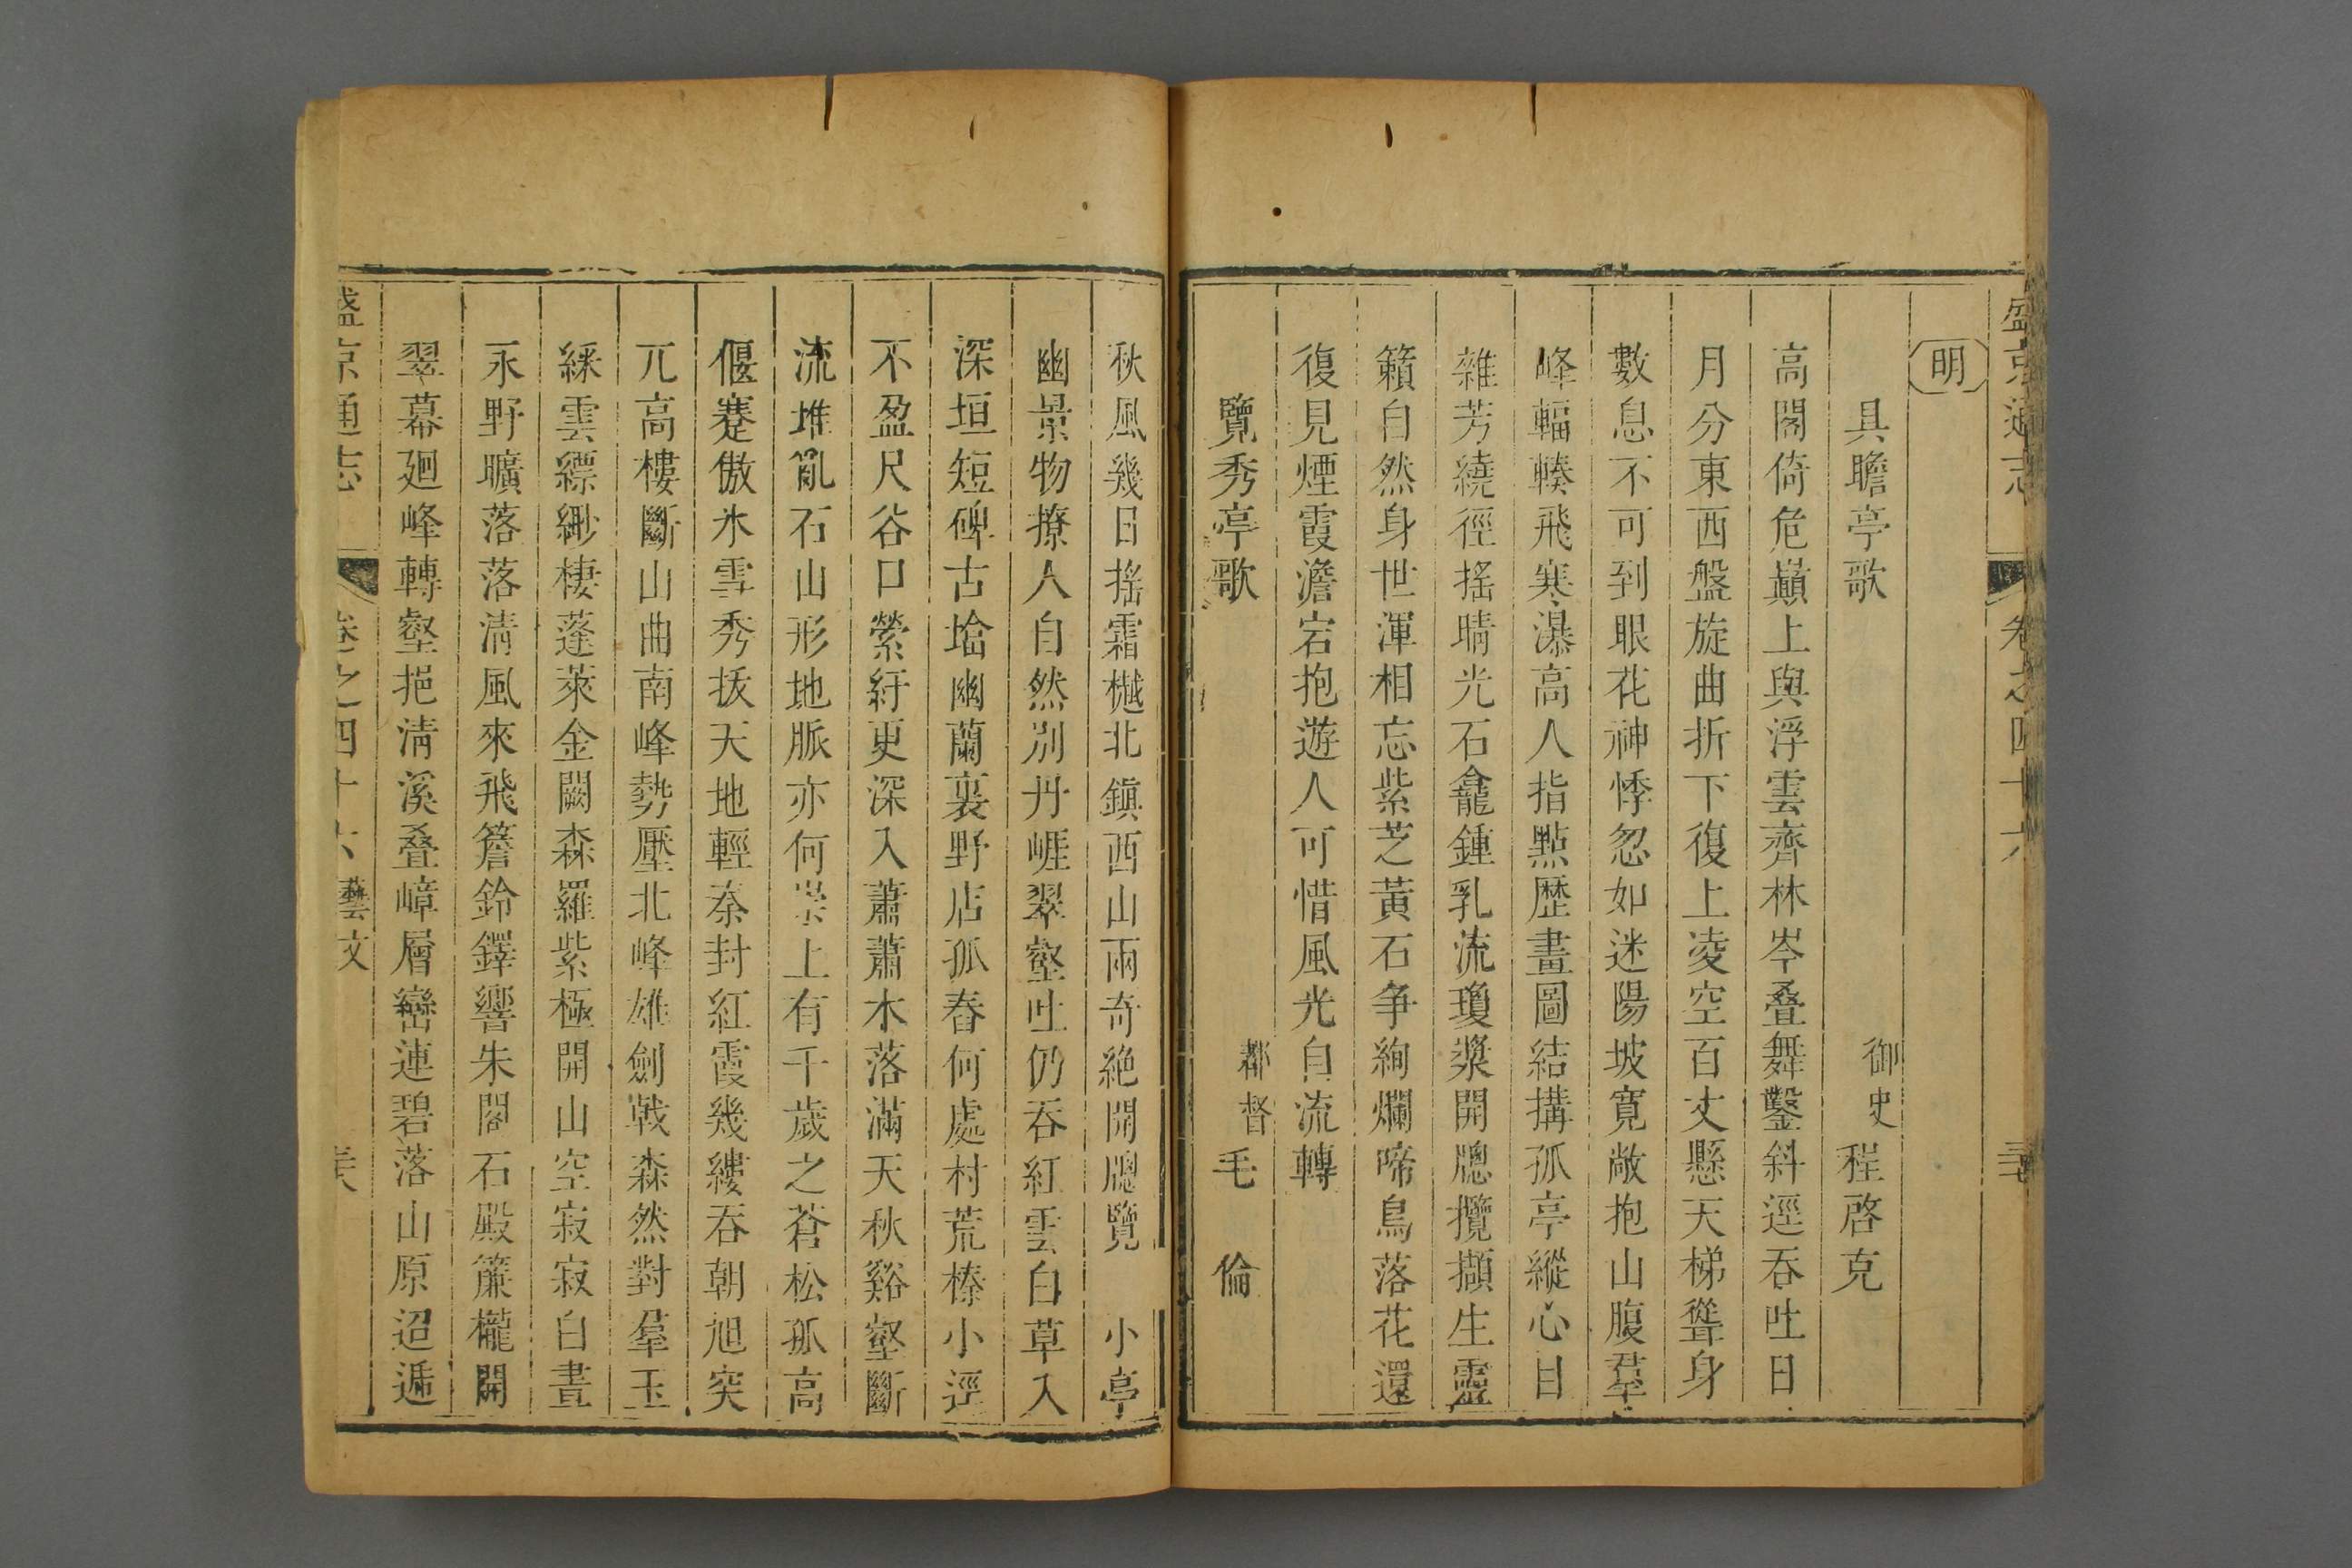 盛京通志 卷之四十六
明
具瞻亭歌 御史 程啓克
高閣倚危巔上與浮雲齊林岑叠舞鑿斜逕吞吐日
月分東西盤旋曲折下復上凌空百丈懸天梯聳身
數息不可到眼花神悸忽如迷陽坡寛敞抱山腹羣
峰輻輳飛寒瀑高人指點歷畫圖結搆孤亭縱心目
雜芳繞徑搖晴光石龕鍾乳流瓊漿開牕攬擷生靈
籟自然身世渾相忘紫芝黃石争絢爛啼鳥落花還
復見煙霞澹宕抱遊人可惜風光自流轉
覽秀亭歌 都督 毛 倫
秋風幾日搖霜樾北鎭西山兩奇絶開牕覽 小亭
幽景物撩人自然别丹崕翠壑吐仍吞紅雲白草入
深垣短碑古墖幽蘭裏野店孤舂何處村荒榛小逕
不盈尺谷口縈紆更深入蕭蕭木落滿天秋谿壑斷
流堆亂石山形地脈亦何崇上有千歲之蒼松孤高
偃蹇傲氷雪秀拔天地輕秦封紅霞幾縷吞朝旭突
兀高樓斷山曲南峰勢壓北峰雄劍戟森然對羣玉
綵雲縹緲棲蓬萊金闕森羅紫極開山空寂寂白晝
永野曠落落淸風來飛簷鈴鐸響朱閣石殿簾櫳開
翠幕廻峰轉壑挹淸溪叠嶂層巒連碧落山原迢遞
盛京通志 卷之四十六 藝文